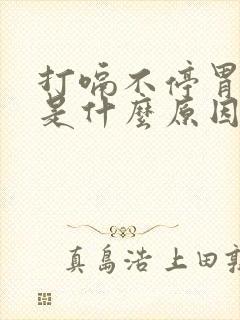 打嗝不停胃
是什麼原因
真島浩 上田敦